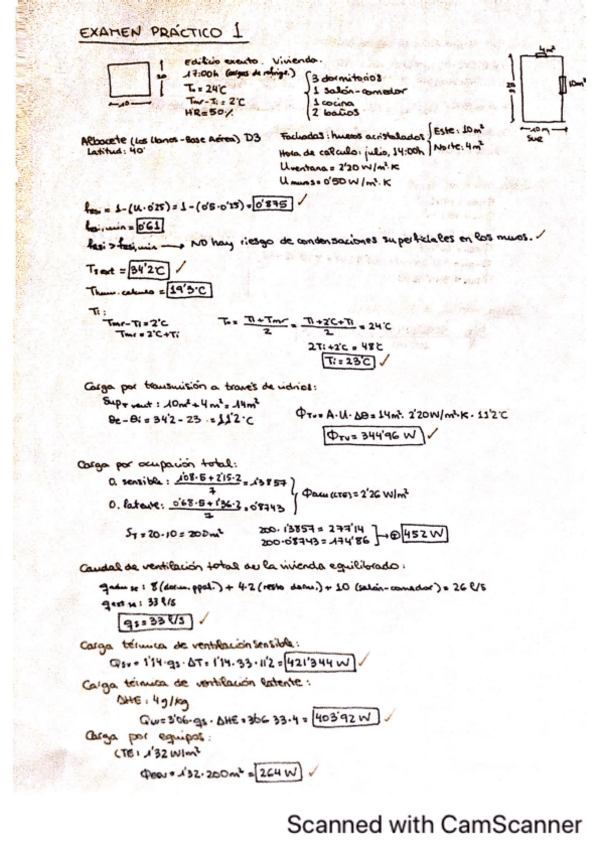 EXAMEN PRÁCTICO 1
Edificio exento. Vivienda.
17:00h (cargas de refrige.)
To = 24ºC
Tmr - Ti = 2ºC
HR = 50%
3 dormitorios
1 salón-comedor
1 cocina
2 baños
20
10
4m²
10m²
10m
Sur
Albacete (Los Llanos - Base Aérea) D3
Latitud: 40º
Fachadas: huecos acristalados
Este: 10m²
Norte: 4m²
Hora de cálculo: julio, 14:00h
Uventana = 2'20 W/m²·K
Umuros = 0'50 W/m²·K
fRsi = 1 - (U·0'25) = 1 - (0'5·0'25) = 0'875 ✓
fRsi,min = 0'61
fRsi > fRsi,min → NO hay riesgo de condensaciones superficiales en los muros. ✓
Ts ext = 34'2ºC ✓
= 19'3ºC
Ti:
Tmr - Ti = 2ºC
Tmr = 2ºC + Ti
To = Ti + Tmr / 2 = Ti + 2ºC + Ti / 2 = 24ºC
2Ti + 2ºC = 48ºC
Ti = 23ºC ✓
Carga por transmisión a través de vidrios:
Sup T vent: 10m² + 4m² = 14m²
θe - θi = 34'2 - 23 = 11'2ºC
ΦTV = A·U·Δθ = 14m²·2'20W/m²·K·11'2ºC
ΦTV = 344'96 W ✓
Carga por ocupación total:
O. sensible: 1'08·5 + 2'15·2 / 7 = 1'3857
O. latente: 0'68·5 + 1'36·2 / 7 = 0'8743
Φocu (CTE) = 2'26 W/m²
ST = 20·10 = 200m²
200·1'3857 = 277'14
200·0'8743 = 174'86
→ ⊕ 452 W
Caudal de ventilación total de la vivienda equilibrado:
qadm se: 8 (dorm. ppal.) + 4·2 (resto dorm.) + 10 (salón-comedor) = 26 l/s
qext se: 33 l/s
qs = 33 l/s ✓
Carga térmica de ventilación sensible:
Qsv = 1'14·qs·ΔT = 1'14·33·11'2 = 421'344 W ✓
Carga térmica de ventilación latente:
ΔHE: 4g/kg
QLV = 3'06·qs·ΔHE = 3'06·33·4 = 403'92 W ✓
Carga por equipos:
CTE: 1'32 W/m²
Φequ = 1'32·200m² = 264 W ✓
Scanned with CamScanner